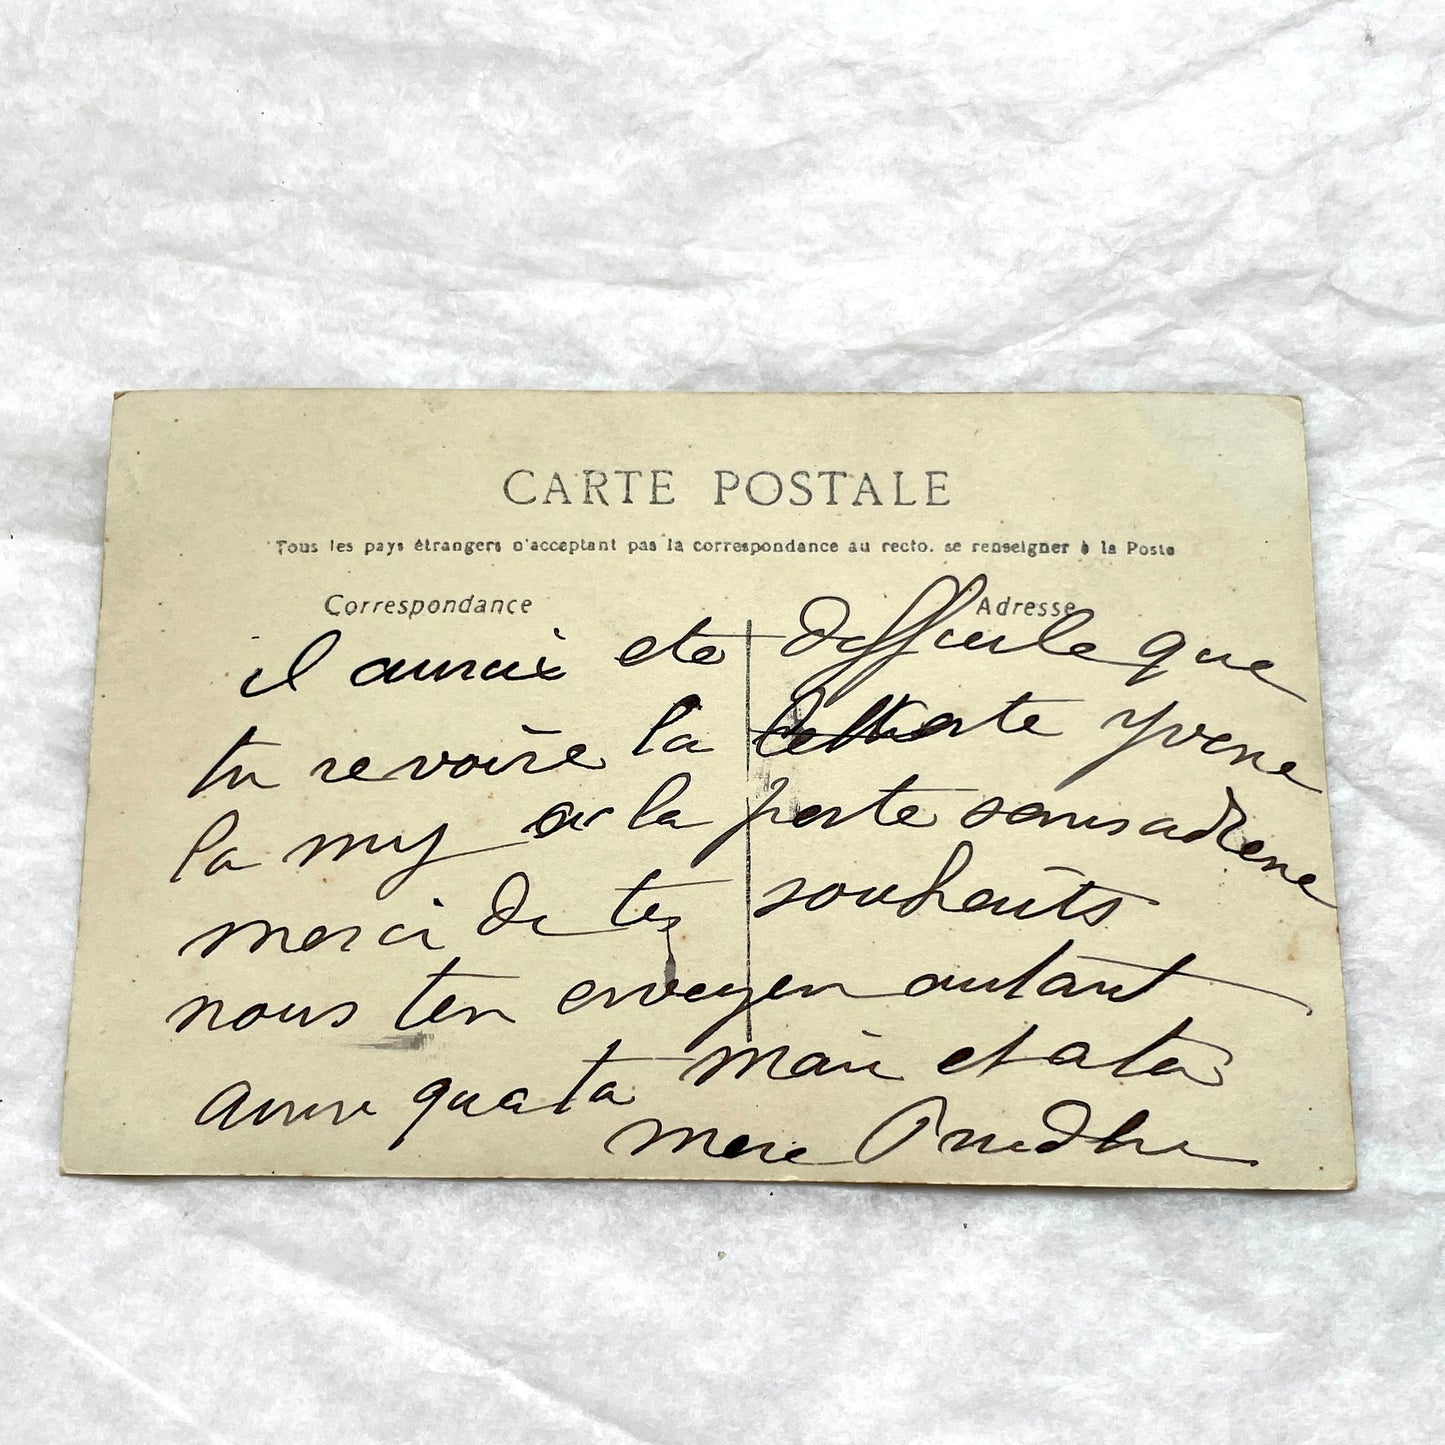 CARTE POSTALE
Tous les pays étrangers n'acceptant pas la correspondance au recto. se renseigner à la Poste
Correspondance Adresse
il aurai ete difficile que
tu revoire la carte Yvone
la my a la porte sans adrene
merci de tes souhaits
nous ten envoyen autant
qua ta mari et a ta
mere